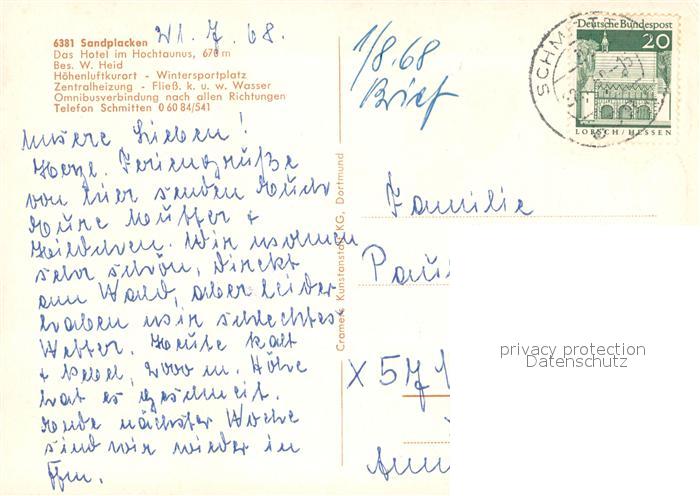 6381 Sandplacken 21. 7. 68.
Das Hotel im Hochtaunus, 670 m
Bes. W. Heid
Höhenluftkurort - Wintersportplatz
Zentralheizung - Fließ. k. u. w. Wasser
Omnibusverbindung nach allen Richtungen
Telefon Schmitten 0 60 84/541
Unsere Lieben!
Herzl. Feriengrüße
von hier senden Euch
Eure Mutter +
Heildchen. Wir wohnen
sehr schön, direkt
am Wald, aber leider
haben wir schlechtes
Wetter. Heute kalt
+ Nebel, 2000 m. Höhe
hat es geschneit.
Ende nächster Woche
sind wir wieder in
Ffm.
Cramers Kunstanstalt KG, Dortmund
1/8.68
Brief
Deutsche Bundespost
20
LORSCH/HESSEN
SCHMITTEN
Familie
X 57
privacy protection
Datenschutz